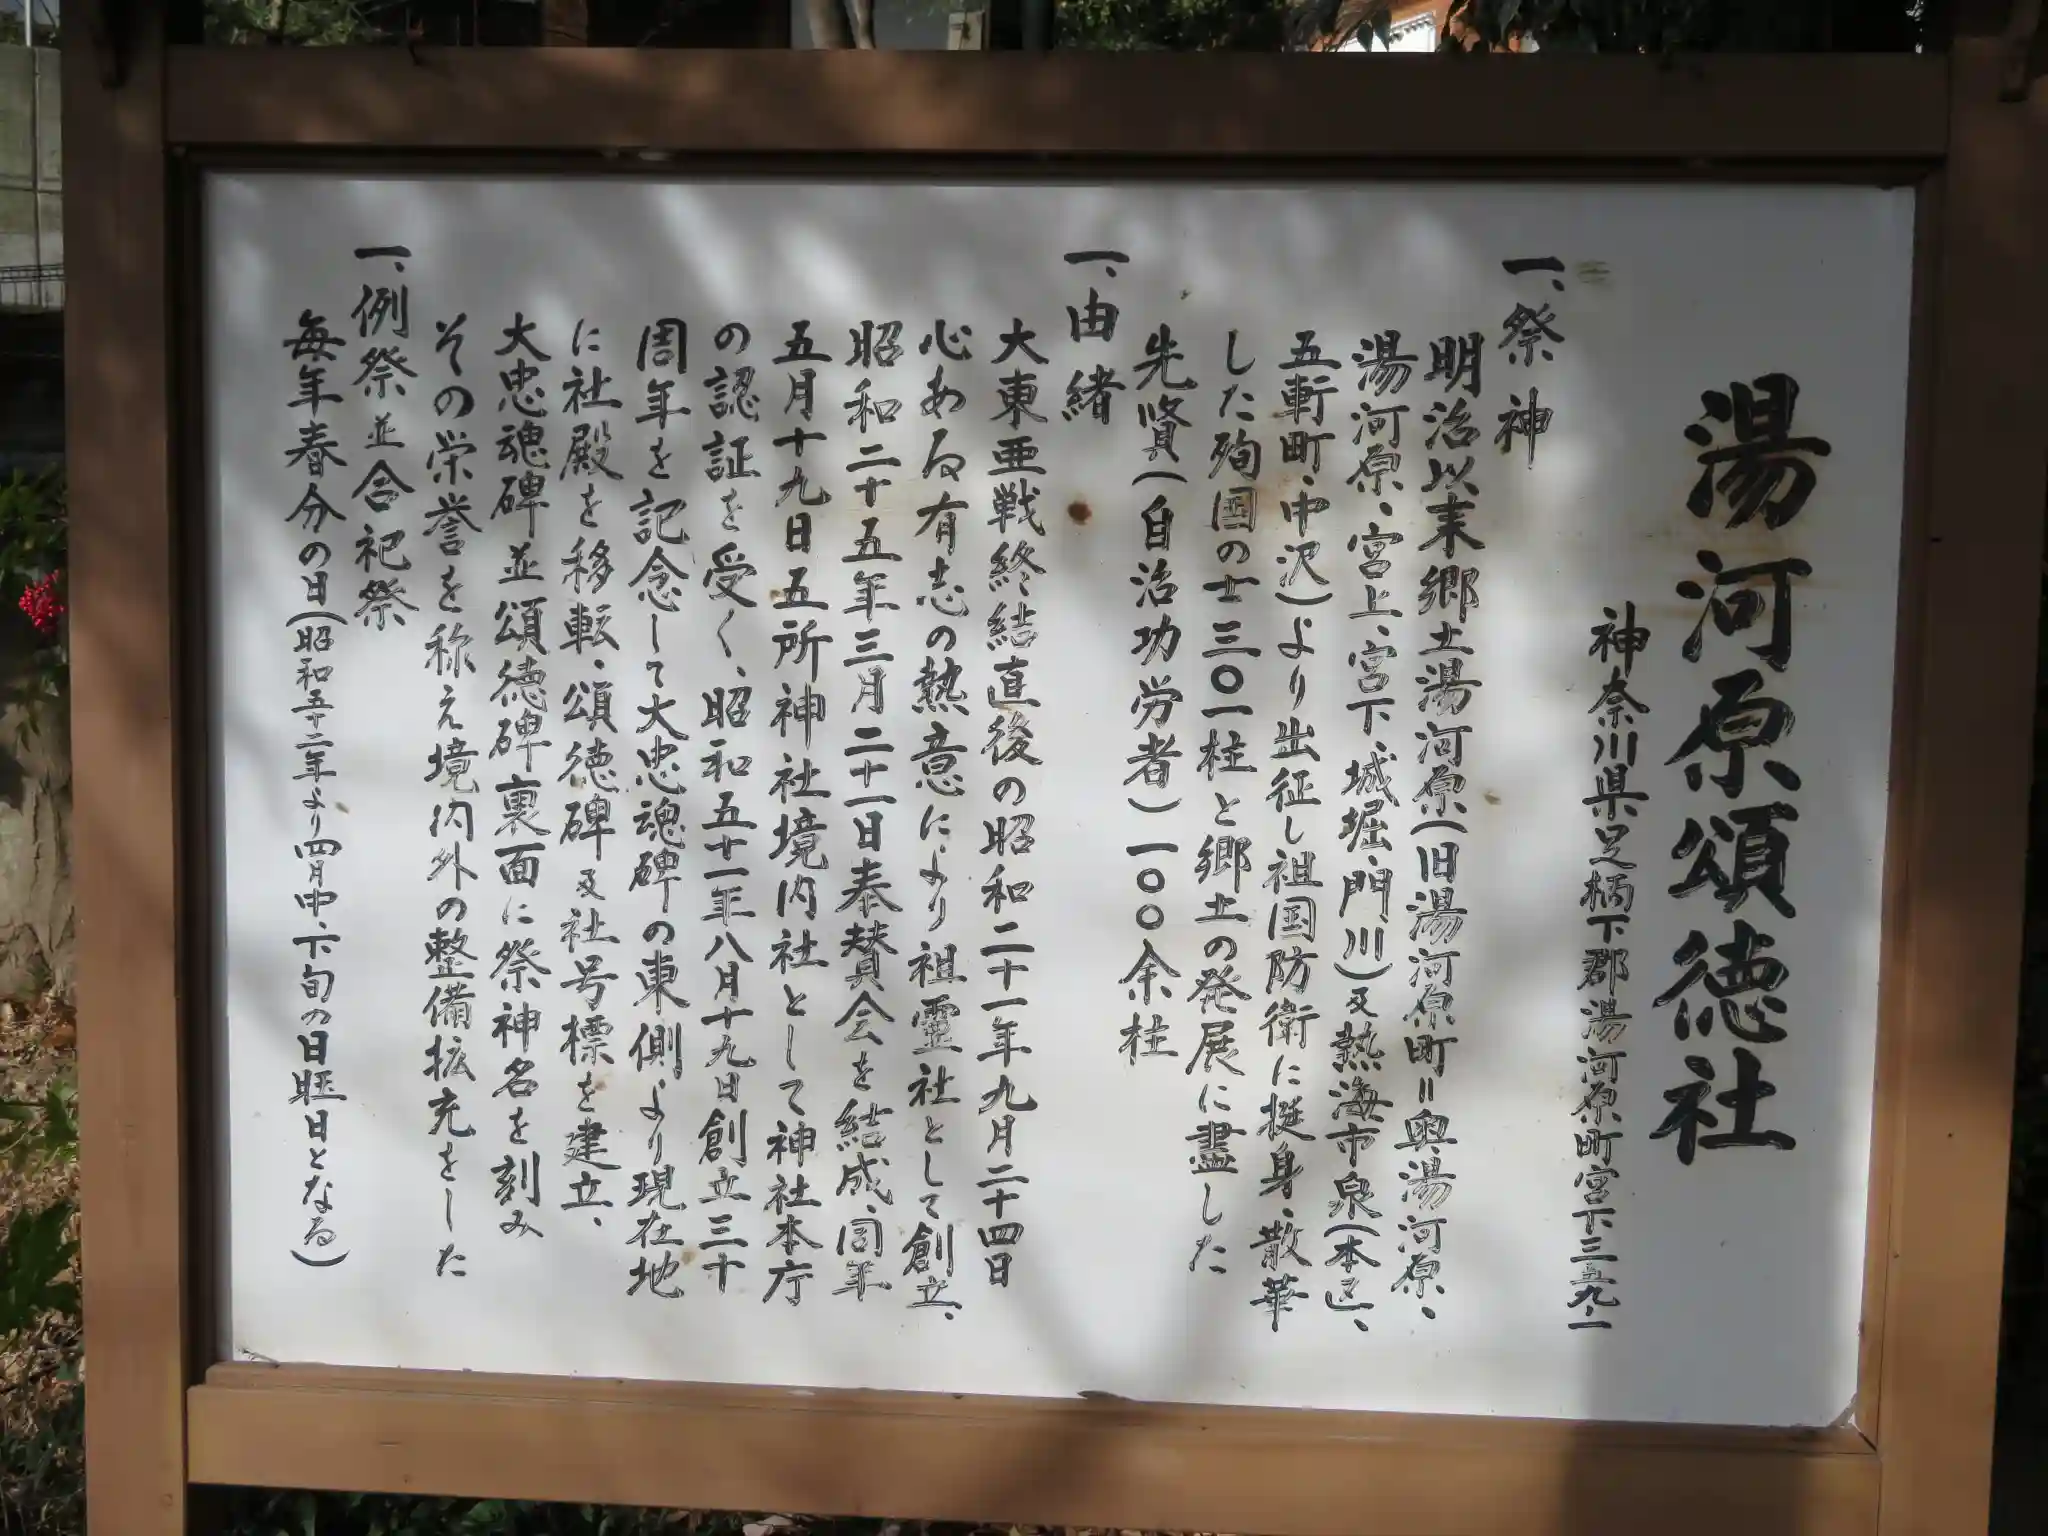 湯河原頌徳社
神奈川県足柄下郡湯河原町宮下三五九‐一
一、祭神
明治以来郷土湯河原(旧湯河原町=奥湯河原、
湯河原、宮上、宮下、城堀、門、川)及熱海市泉(本区、
五軒町、中沢)より出征し祖国防衛に挺身、散華
した殉国の士三〇一柱と郷土の発展に盡した
先賢(自治功労者)一〇〇余柱
一、由緒
大東亜戦終結直後の昭和二十一年九月二十四日
心ある有志の熱意により祖霊社として創立、
昭和二十五年三月二十一日奉賛会を結成、同年
五月十九日五所神社境内社として神社本庁
の認証を受く、昭和五十一年八月十九日創立三十
周年を記念して大忠魂碑の東側より現在地
に社殿を移転、頌徳碑及社号標を建立、
大忠魂碑並頌徳碑裏面に祭神名を刻み
その栄誉を称え境内外の整備拡充をした
一、例祭並合祀祭
毎年春分の日(昭和五十二年より四月中、下旬の日曜日となる)